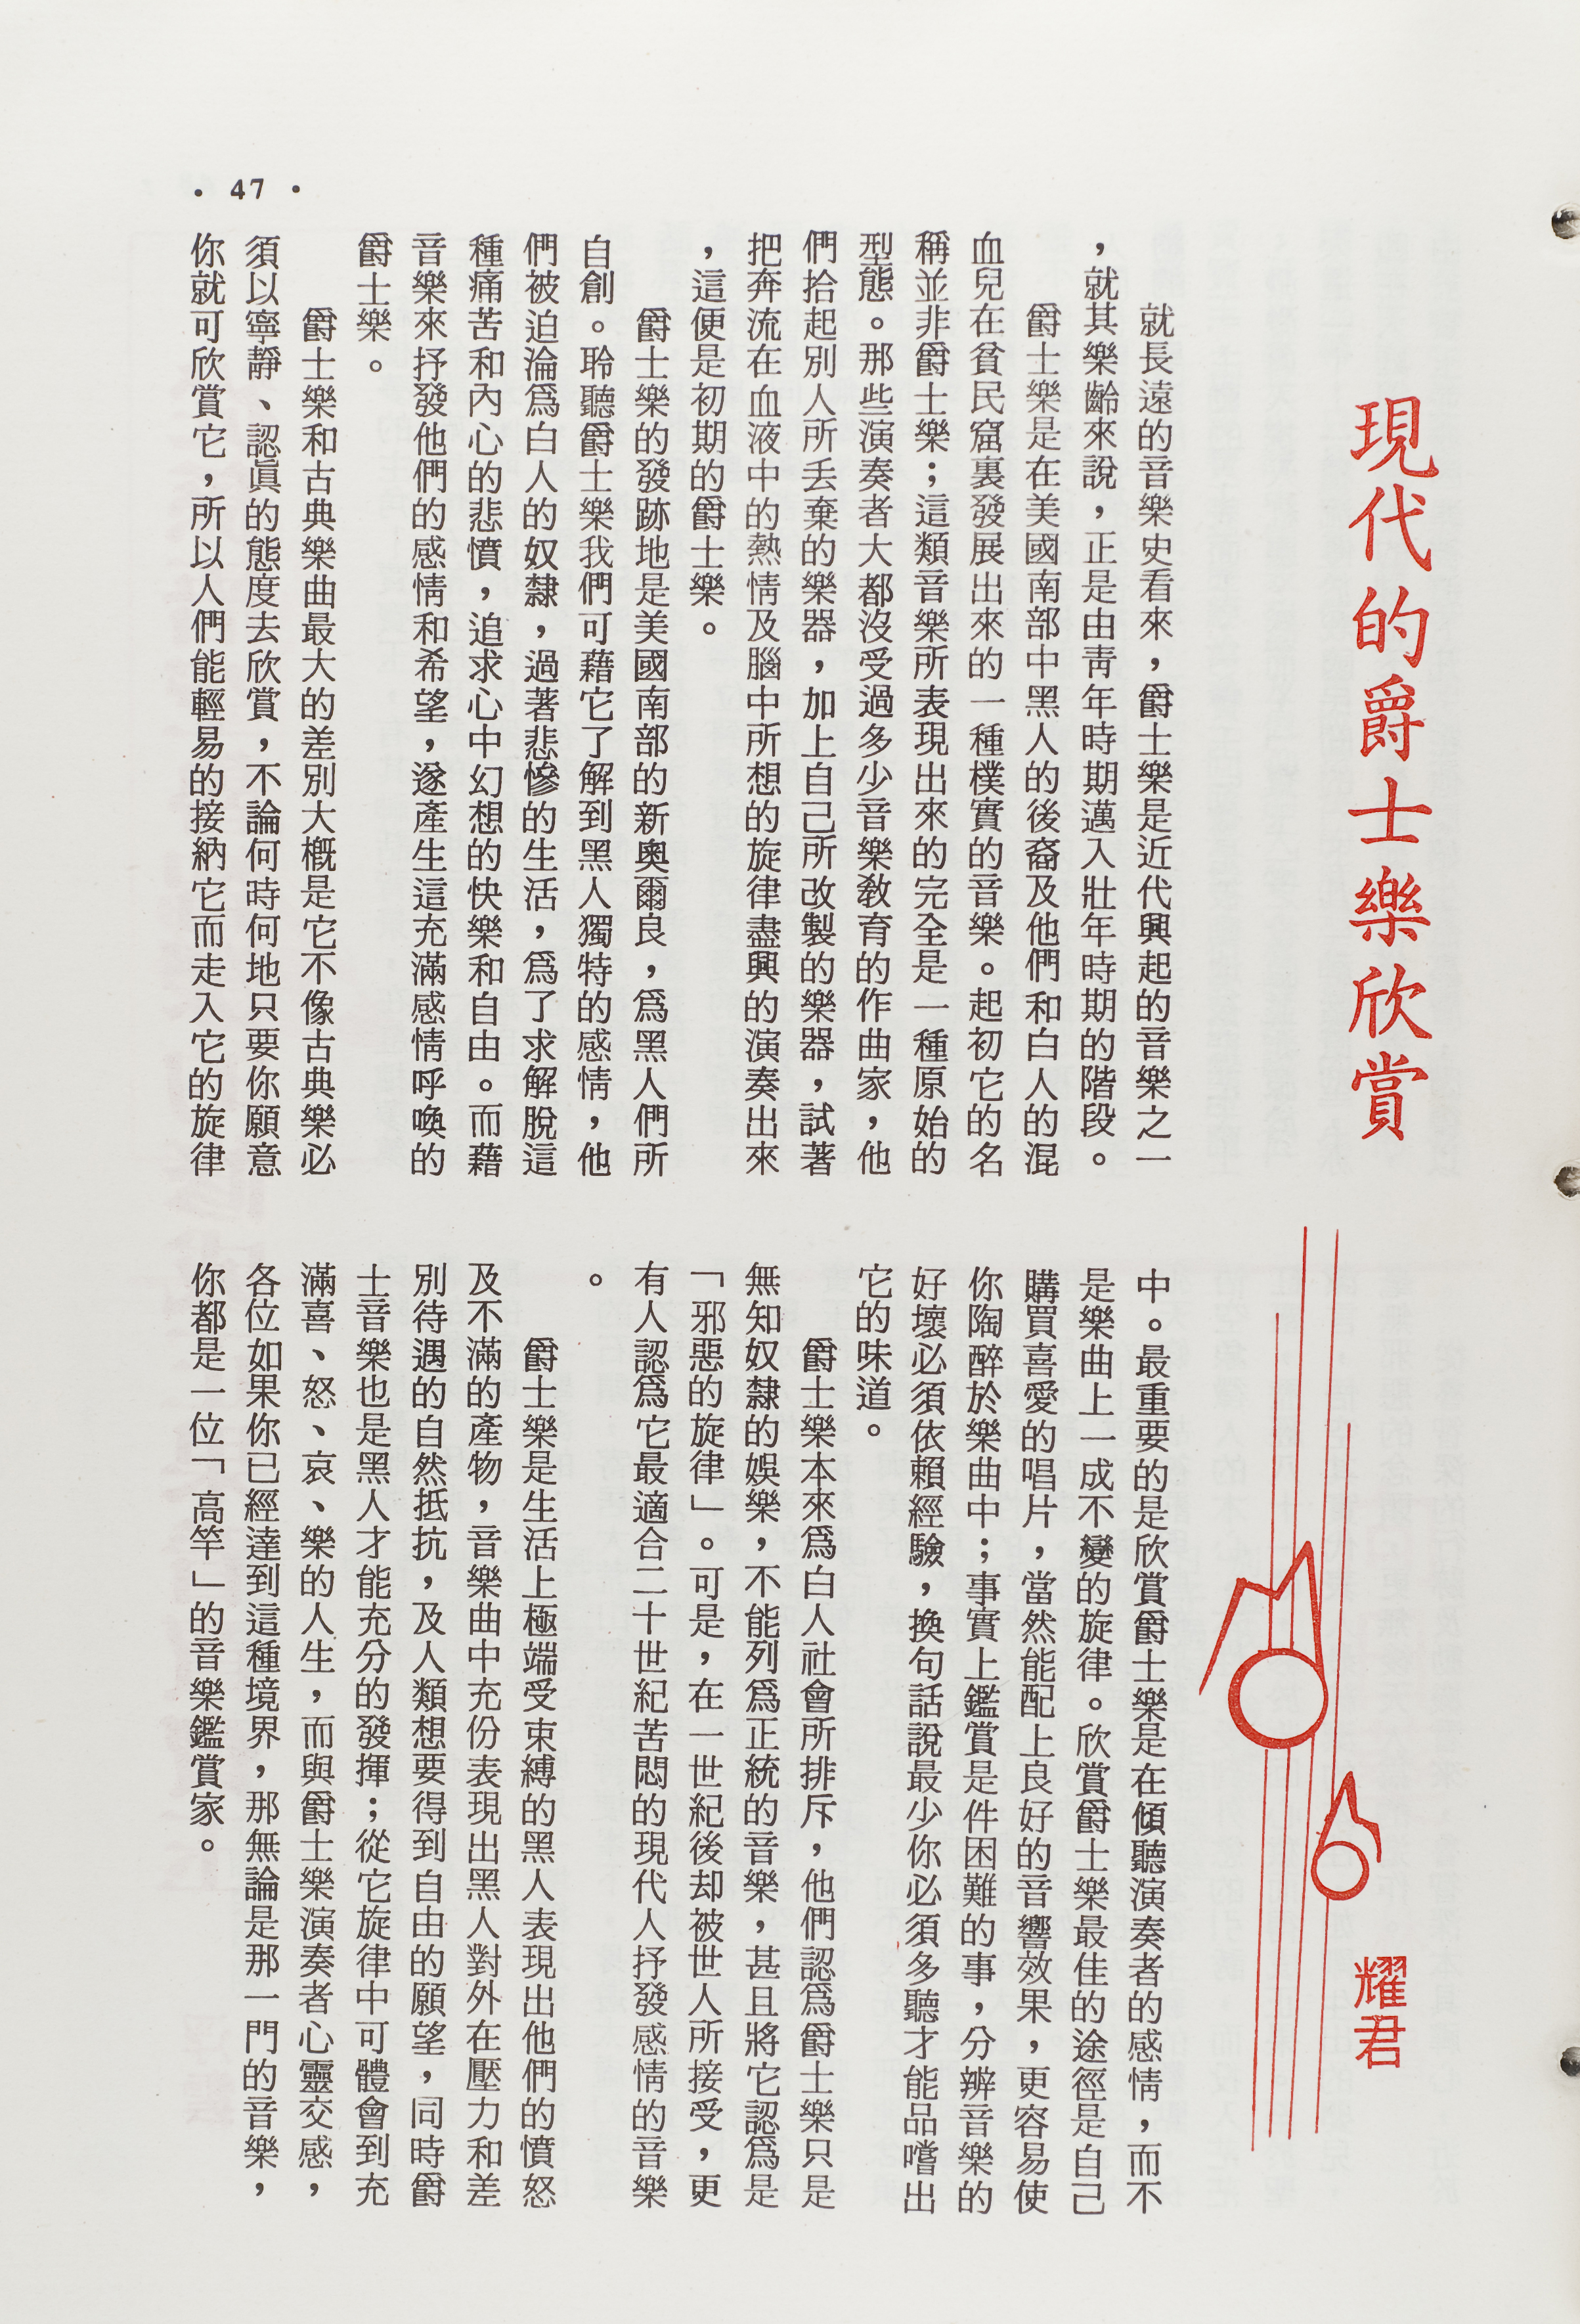 現代的爵士樂欣賞
耀君
就長遠的音樂史看來，爵士樂是近代興起的音樂之一
，就其樂齡來說，正是由靑年時期邁入壯年時期的階段。
爵士樂是在美國南部中黑人的後裔及他們和白人的混
血兒在貧民窟裏發展出來的一種樸實的音樂。起初它的名
稱並非爵士樂；這類音樂所表現出來的完全是一種原始的
型態。那些演奏者大都沒受過多少音樂敎育的作曲家，他
們拾起別人所丢棄的樂器，加上自己所改製的樂器，試著
把奔流在血液中的熱情及腦中所想的旋律盡興的演奏出來
，這便是初期的爵士樂。
爵士樂的發跡地是美國南部的新奧爾良，爲黑人們所
自創。聆聽爵士樂我們可藉它了解到黑人獨特的感情，他
們被迫淪爲白人的奴隸，過著悲慘的生活，爲了求解脫這
種痛苦和內心的悲憤，追求心中幻想的快樂和自由。而藉
音樂來抒發他們的感情和希望，遂產生這充滿感情呼喚的
爵士樂。
爵士樂和古典樂曲最大的差別大概是它不像古典樂必
須以寧靜、認眞的態度去欣賞，不論何時何地只要你願意
你就可欣賞它，所以人們能輕易的接納它而走入它的旋律
中。最重要的是欣賞爵士樂是在傾聽演奏者的感情，而不
是樂曲上一成不變的旋律。欣賞爵士樂最佳的途徑是自己
購買喜愛的唱片，當然能配上良好的音響效果，更容易使
你陶醉於樂曲中；事實上鑑賞是件困難的事，分辨音樂的
好壞必須依賴經驗，換句話說最少你必須多聽才能品嚐出
它的味道。
爵士樂本來爲白人社會所排斥，他們認爲爵士樂只是
無知奴隸的娛樂，不能列爲正統的音樂，甚且將它認爲是
「邪惡的旋律」。可是，在一世紀後却被世人所接受，更
有人認爲它最適合二十世紀苦悶的現代人抒發感情的音樂
。
爵士樂是生活上極端受束縛的黑人表現出他們的憤怒
及不滿的產物，音樂曲中充份表現出黑人對外在壓力和差
別待遇的自然抵抗，及人類想要得到自由的願望，同時爵
士音樂也是黑人才能充分的發揮；從它旋律中可體會到充
滿喜、怒、哀、樂的人生，而與爵士樂演奏者心靈交感，
各位如果你已經達到這種境界，那無論是那一門的音樂，
你都是一位「高竿」的音樂鑑賞家。
• 47 •